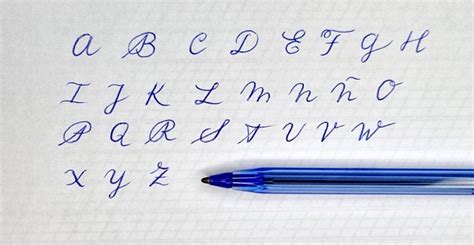 A B C D E F G H
I J K L M N Ñ O
P Q R S T U V W
X Y Z